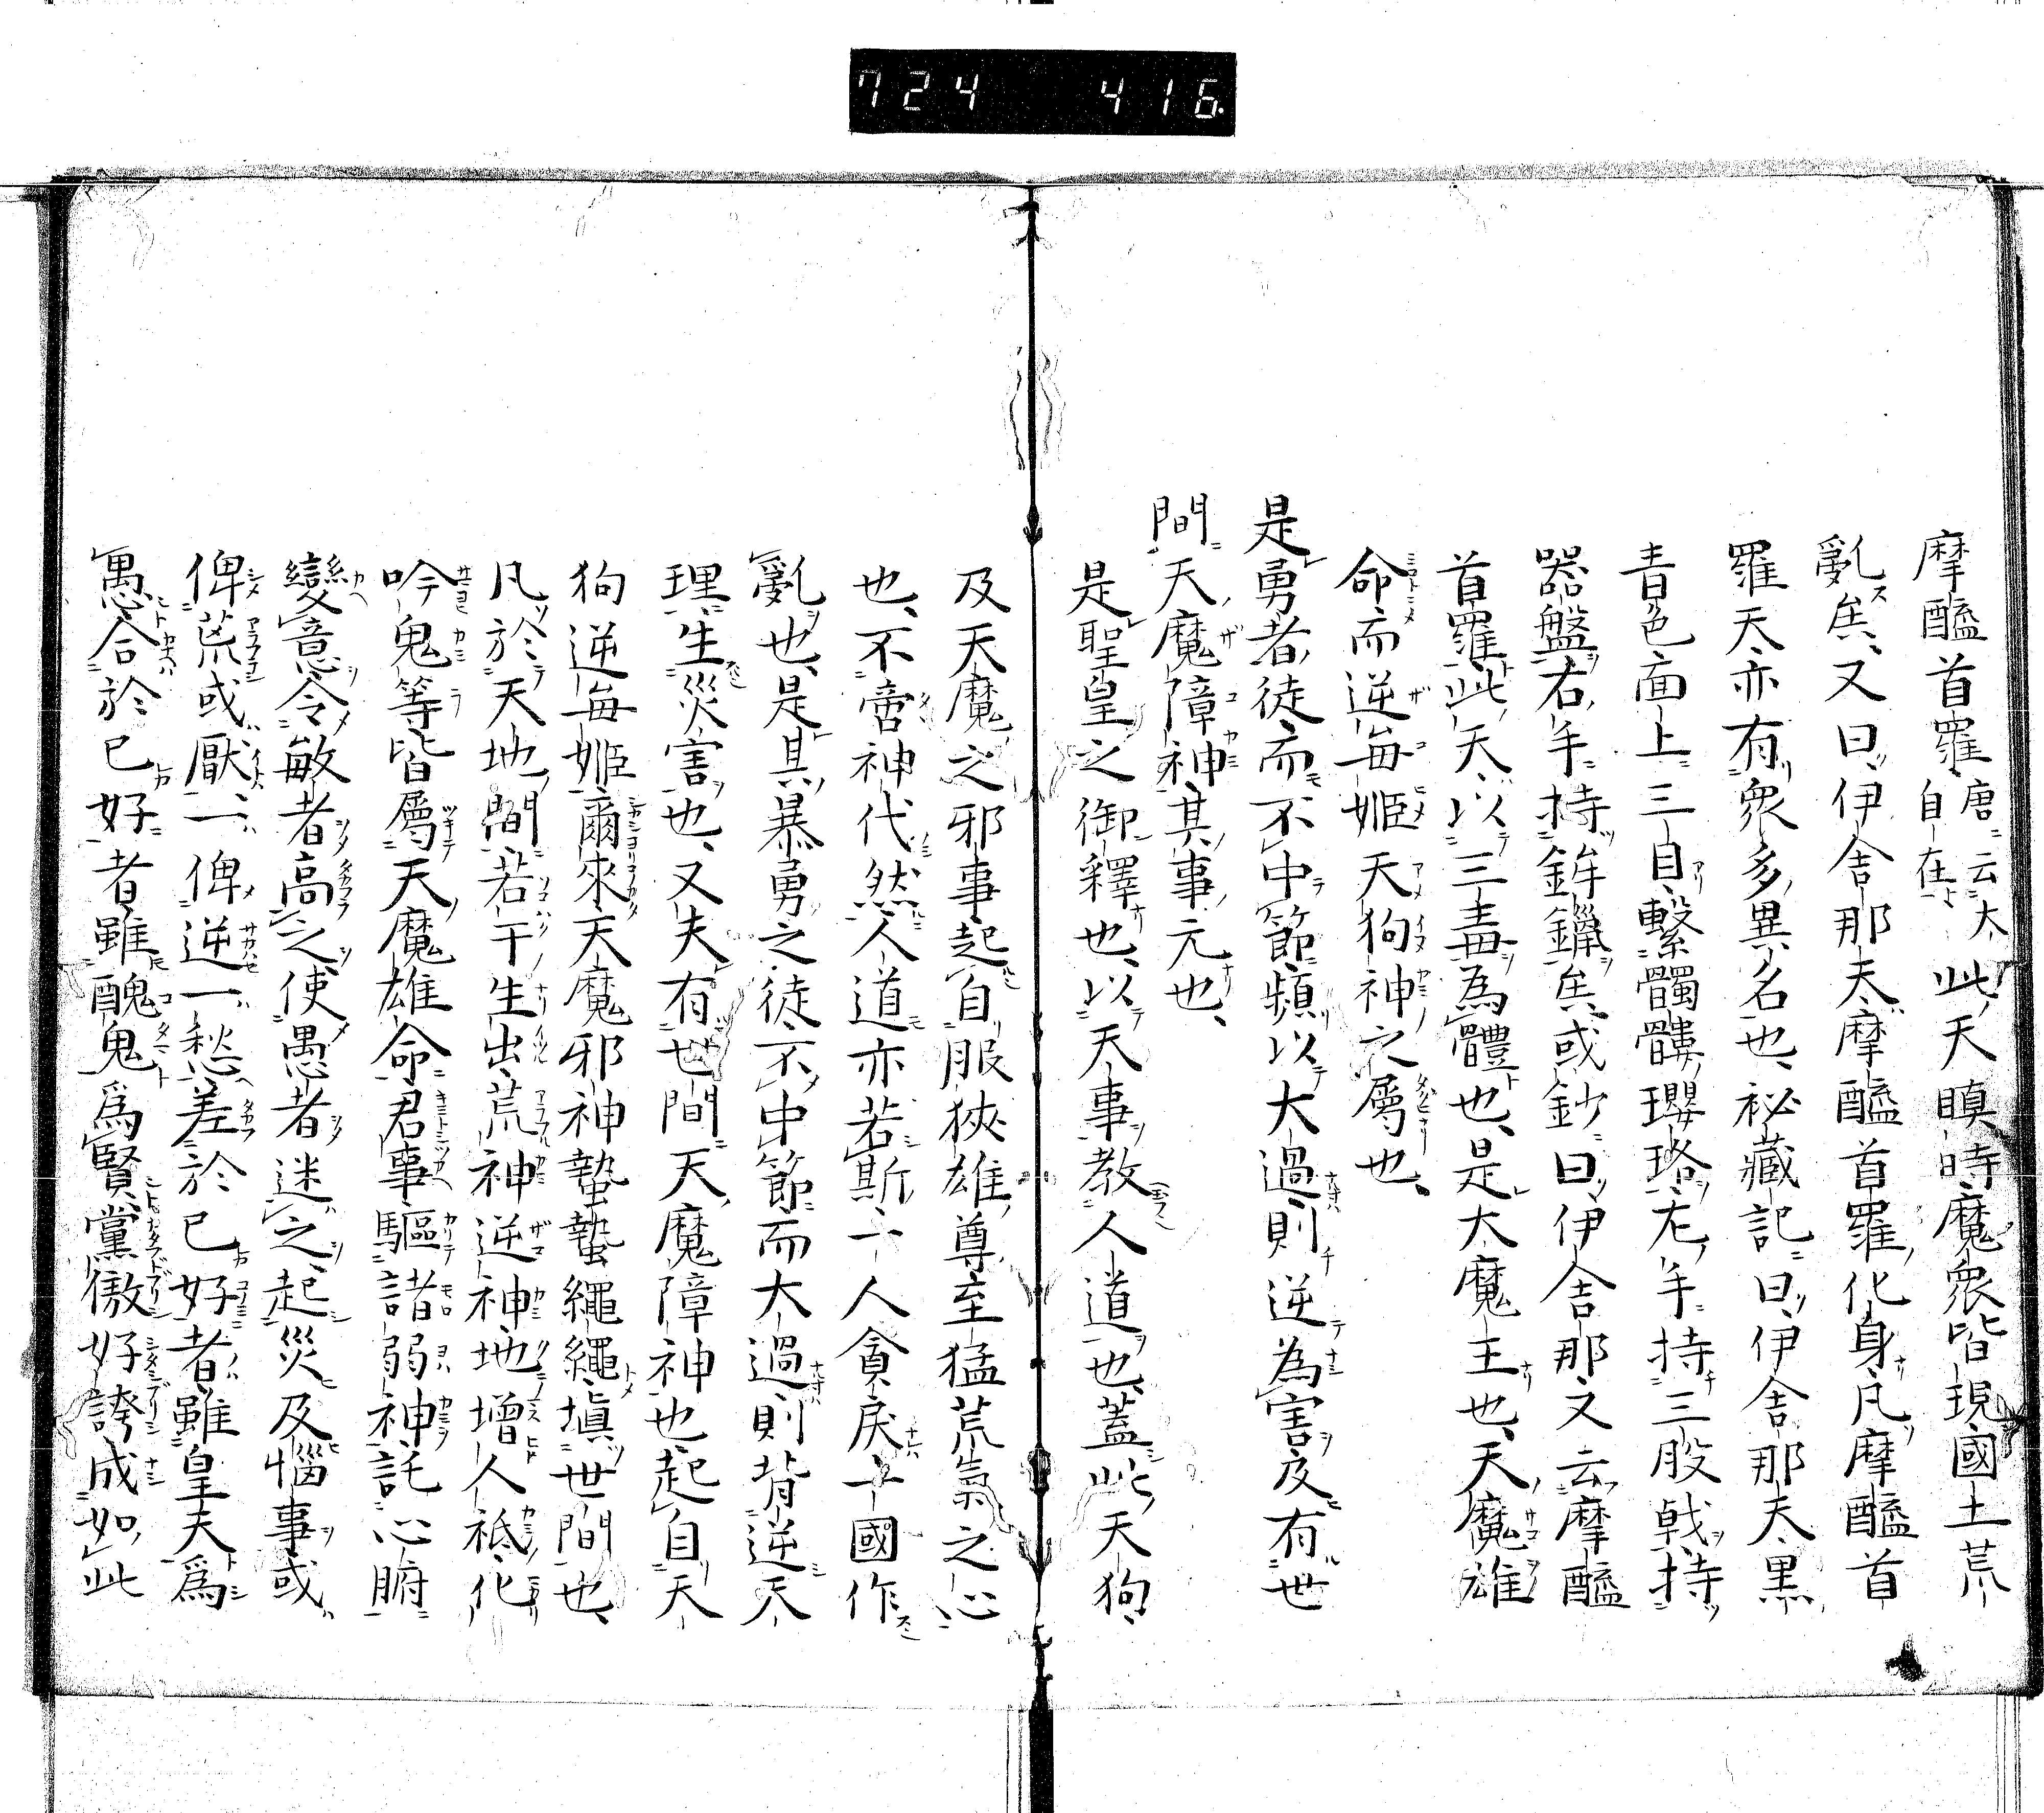 724 416
摩醯首羅唐云大自在此天瞋時魔衆皆現國土荒
亂矣又曰伊舎那天摩醯首羅化身凡摩醯首
羅天亦有衆多異名也祕藏記曰伊舎那天黒
青色面上三目繫髑髏瓔珞左手持三股戟持
器盤右手持鉾鑞矣或鈔曰伊舎那又云摩醯
首羅此天以三毒為體也是大魔王也天魔雄
命而逆毎姫天狗神之屬也
是勇者徒而不中節頻以大過則逆為害及有世
間天魔障神其事元也
是聖皇之御釋也以天事教人道也蓋此天狗
及天魔之邪事起自服狹雄尊至猛荒祟之心
也不啻神代然人道亦若斯一人貪戻一國作
亂也是其暴勇之徒不中節而大過則背逆天
理生災害也又夫有世間天魔障神也起自天
狗逆毎姫爾來天魔邪神蟄蟄繩繩塡世間也
凡於天地間若干生出荒神逆神地増人祗化
吟鬼等皆屬天魔雄命君事驅諸弱神託心腑
變意令敏者高之使愚者迷之起災及惱事或
俾荒或厭一俾逆一愁差於己好者雖皇夫爲
愚合於己好者雖醜鬼爲賢黨傲好誇成如此